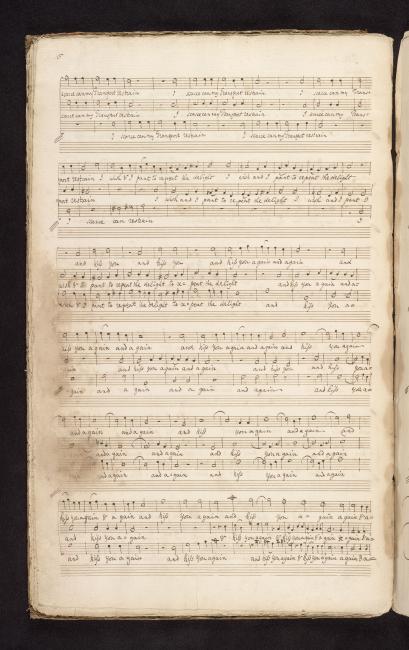 scarce can my Transport restrain I scarce can my Transport restrain I scarce can my Trans=
scarce can my Transport restrain I scarce can my Transport restrain I scarce can my Trans=
I scarce can my Transport restrain I scarce can my Transport restrain
port restrain I wish & I pant to repeat the delight I wish and I pant to repeat the delight
port restrain I wish and I pant to repeat the delight I wish and I pant to
I scarce can restrain I
and kiss you and kiss you and kiss you again and again and
wish & I pant to repeat the delight to repeat the delight and kiss you again and a=
wish & I pant to repeat the delight to repeat the delight and kiss you a=
kiss you again and again and kiss you again and again and kiss you again
gain and kiss you again and again and kiss you and kiss you a=
gain and again and again and again and kiss you a=
and again and again and kiss you again and again and
and again and again and kiss you again and again
and again and again and kiss you again and again
kiss you again & again and kiss you again and kiss you again again & a=
and kiss you again & kiss you again & kiss you again & again & a=
and kiss you again and kiss you again and kiss you again & kiss you again & again & a=